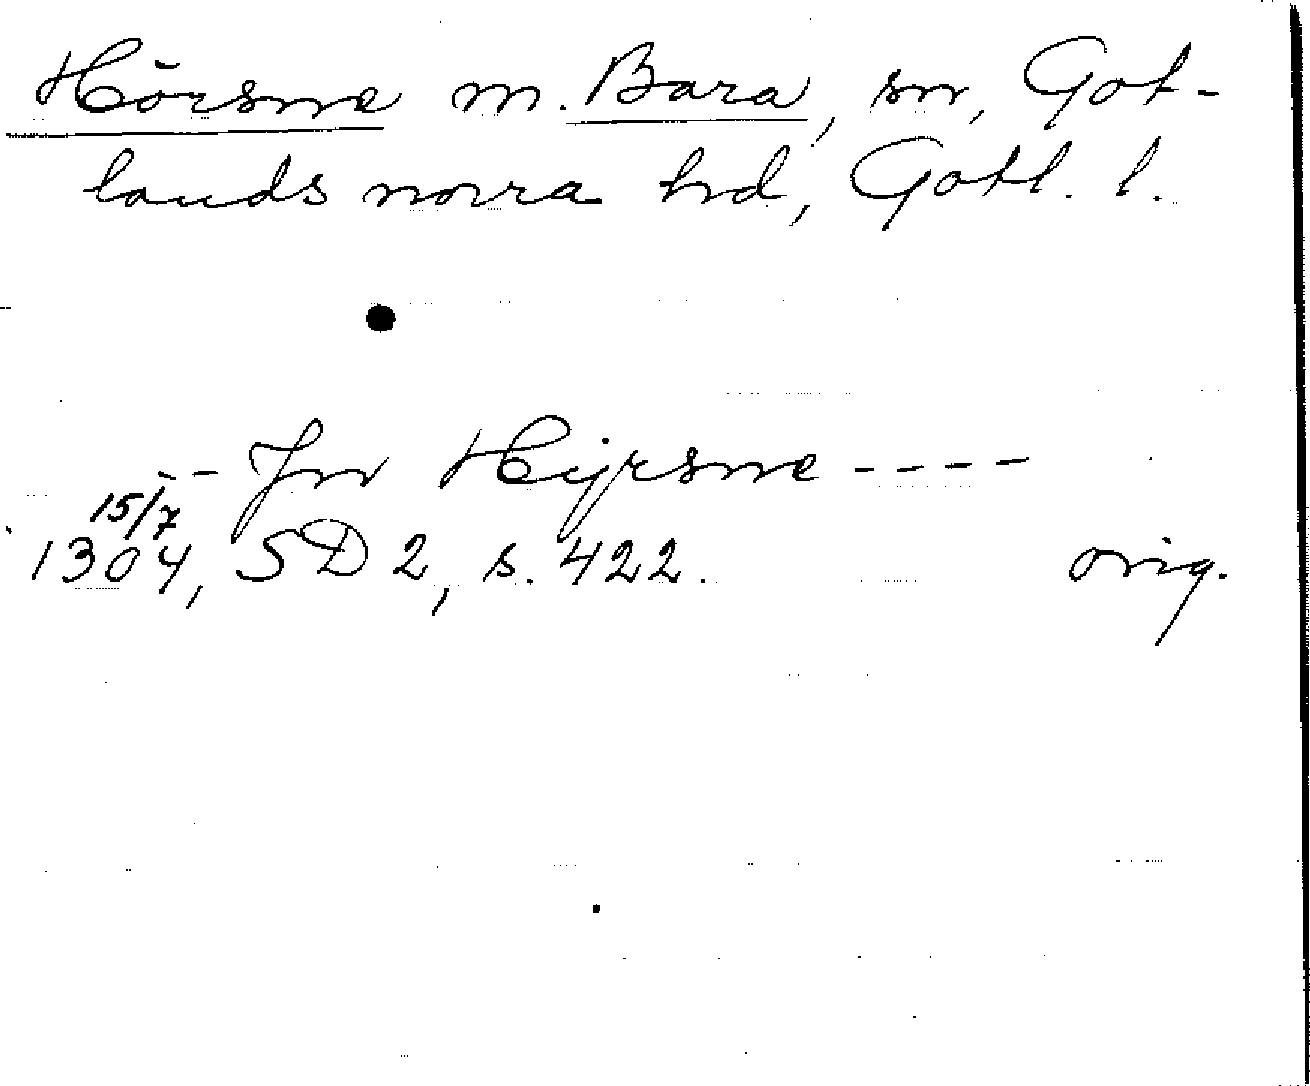 Hörsne m. Bara, sn, Got-
lands norra hd, Gotl. l.
-- Jn Heyrsne ----
15/7
1304, SD 2, s. 422. orig.